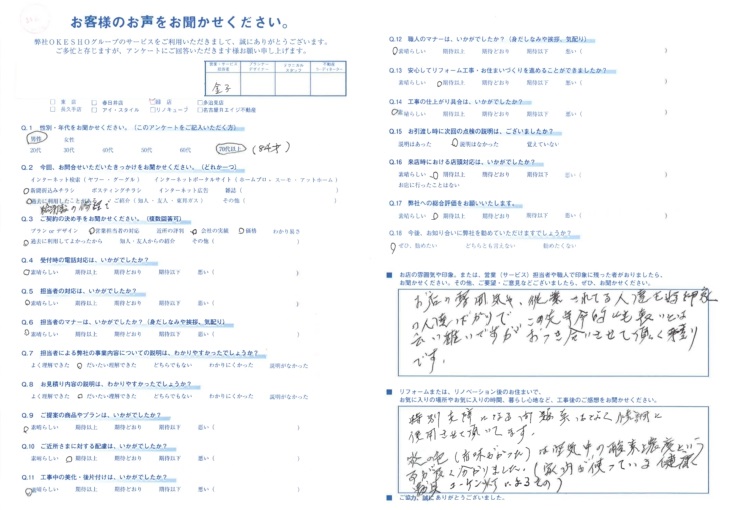 お客様のお声をお聞かせください。
弊社OKESHOグループのサービスをご利用いただきまして、誠にありがとうございます。
ご多忙と存じますが、アンケートにご回答いただきます様お願い申し上げます。
営業・サービス担当者 プランナーデザイナー メディカルスタッフ 不動産コーディネーター
金子
□ 本店 □ 春日井店 □ 緑店 □ 多治見店
□ 長久手店 □ アイ・スタイル □ リノキューブ □ 名古屋Rエイジ不動産
Q.1 性別・年代をお聞かせください。(このアンケートをご記入いただく方)
男性 女性
20代 30代 40代 50代 60代 70代以上 (84才)
Q.2 今回、お問合せいただいたきっかけをお聞かせください。(どれか一つ)
インターネット検索(ヤフー・グーグル) インターネットポータルサイト(ホームプロ・スーモ・アットホーム)
新聞折込みチラシ ポスティングチラシ インターネット広告 雑誌( )
過去に利用したことがある ご紹介(知人・友人・東邦ガス) その他( )
Q.3 ご契約の決め手をお聞かせください。(複数回答可)
プラン or デザイン 営業担当者の対応 近所の評判 会社の実績 価格 わかり易さ
過去に利用してよかったから 知人・友人からの紹介 その他( )
Q.4 受付時の電話対応は、いかがでしたか?
素晴らしい 期待以上 期待どおり 期待以下 悪い( )
Q.5 担当者の対応は、いかがでしたか?
素晴らしい 期待以上 期待どおり 期待以下 悪い( )
Q.6 担当者のマナーは、いかがでしたか?(身だしなみや挨拶、気配り)
素晴らしい 期待以上 期待どおり 期待以下 悪い( )
Q.7 担当者による弊社の事業内容についての説明は、わかりやすかったでしょうか?
よく理解できた だいたい理解できた どちらでもない わかりにくかった 説明がなかった
Q.8 お見積り内容の説明は、わかりやすかったでしょうか?
よく理解できた だいたい理解できた どちらでもない わかりにくかった 説明がなかった
Q.9 ご提案の商品やプランは、いかがでしたか?
素晴らしい 期待以上 期待どおり 期待以下 悪い( )
Q.10 ご近所さまに対する配慮は、いかがでしたか?
素晴らしい 期待以上 期待どおり 期待以下 悪い( )
Q.11 工事中の美化・後片付けは、いかがでしたか?
素晴らしい 期待以上 期待どおり 期待以下 悪い( )
Q.12 職人のマナーは、いかがでしたか?(身だしなみや挨拶、気配り)
素晴らしい 期待以上 期待どおり 期待以下 悪い( )
Q.13 安心してリフォーム工事・お住まいづくりを進めることができましたか?
素晴らしい 期待以上 期待どおり 期待以下 悪い( )
Q.14 工事の仕上がり具合は、いかがでしたか?
素晴らしい 期待以上 期待どおり 期待以下 悪い( )
Q.15 お引渡し時に次回の点検の説明は、ございましたか?
説明はあった 説明はなかった 覚えていない
Q.16 来店時における店頭対応は、いかがでしたか?
素晴らしい 期待以上 期待どおり 期待以下 悪い( )
お店に行ったことはない
Q.17 弊社への総合評価をお願いいたします。
素晴らしい 期待以上 期待どおり 期待以下 悪い( )
Q.18 今後、お知り合いに弊社を勧めていただけますでしょうか?
ぜひ、勧めたい どちらとも言えない 勧めたくない
■ お店の雰囲気や印象、または、営業(サービス)担当者や職人で印象に残った者がおりましたら、
お聞かせください。その他、ご要望・ご意見などございましたら、ぜひ、お聞かせください。
お店の雰囲気や、従業されてる人達も好印象
の人達ばかりで この先年令的にも長いとは
云い難いですが おつき合いさせて頂く積り
です。
■ リフォームまたは、リノベーション後のお住まいで、
お気に入りの場所やお気に入りの時間、暮らし心地など、工事後のご感想をお聞かせください。
特別支障になる問題系はなく順調に
使用させて頂いてます。
炎の色(赤味がかった)は空気中の酸素濃度という
事が良く分かりました。(家内が使っている健康
■ ご協力、誠にありがとうございました。